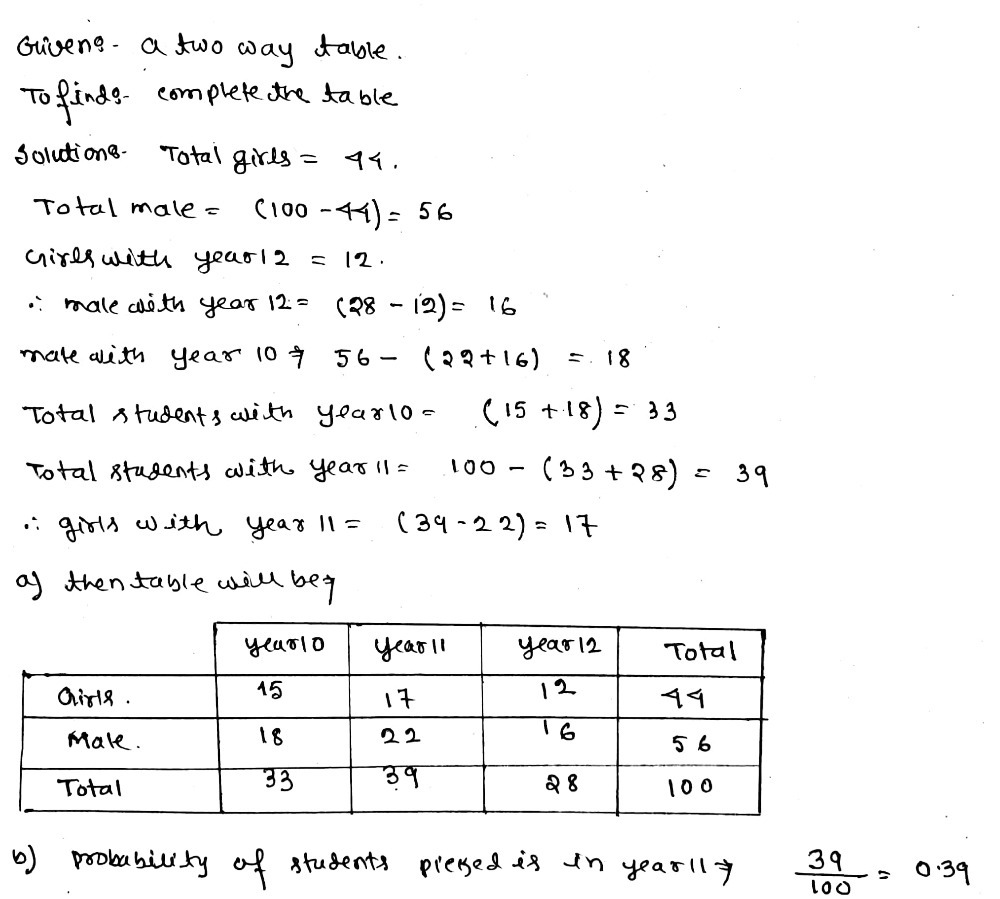 Given:- a two way table.
To find:- complete the table
Solution:- Total girls = 44.
Total male = (100 - 44) = 56
Girls with year 12 = 12.
∴ male with year 12 = (28 - 12) = 16
male with year 10 ⇒ 56 - (22 + 16) = 18
Total students with year 10 = (15 + 18) = 33
Total students with year 11 = 100 - (33 + 28) = 39
∴ girls with year 11 = (39 - 22) = 17
a) then table will be ⇒
year 10 year 11 year 12 Total
Girls. 15 17 12 44
Male. 18 22 16 56
Total 33 39 28 100
b) probability of students picked is in year 11 ⇒ 39/100 = 0.39